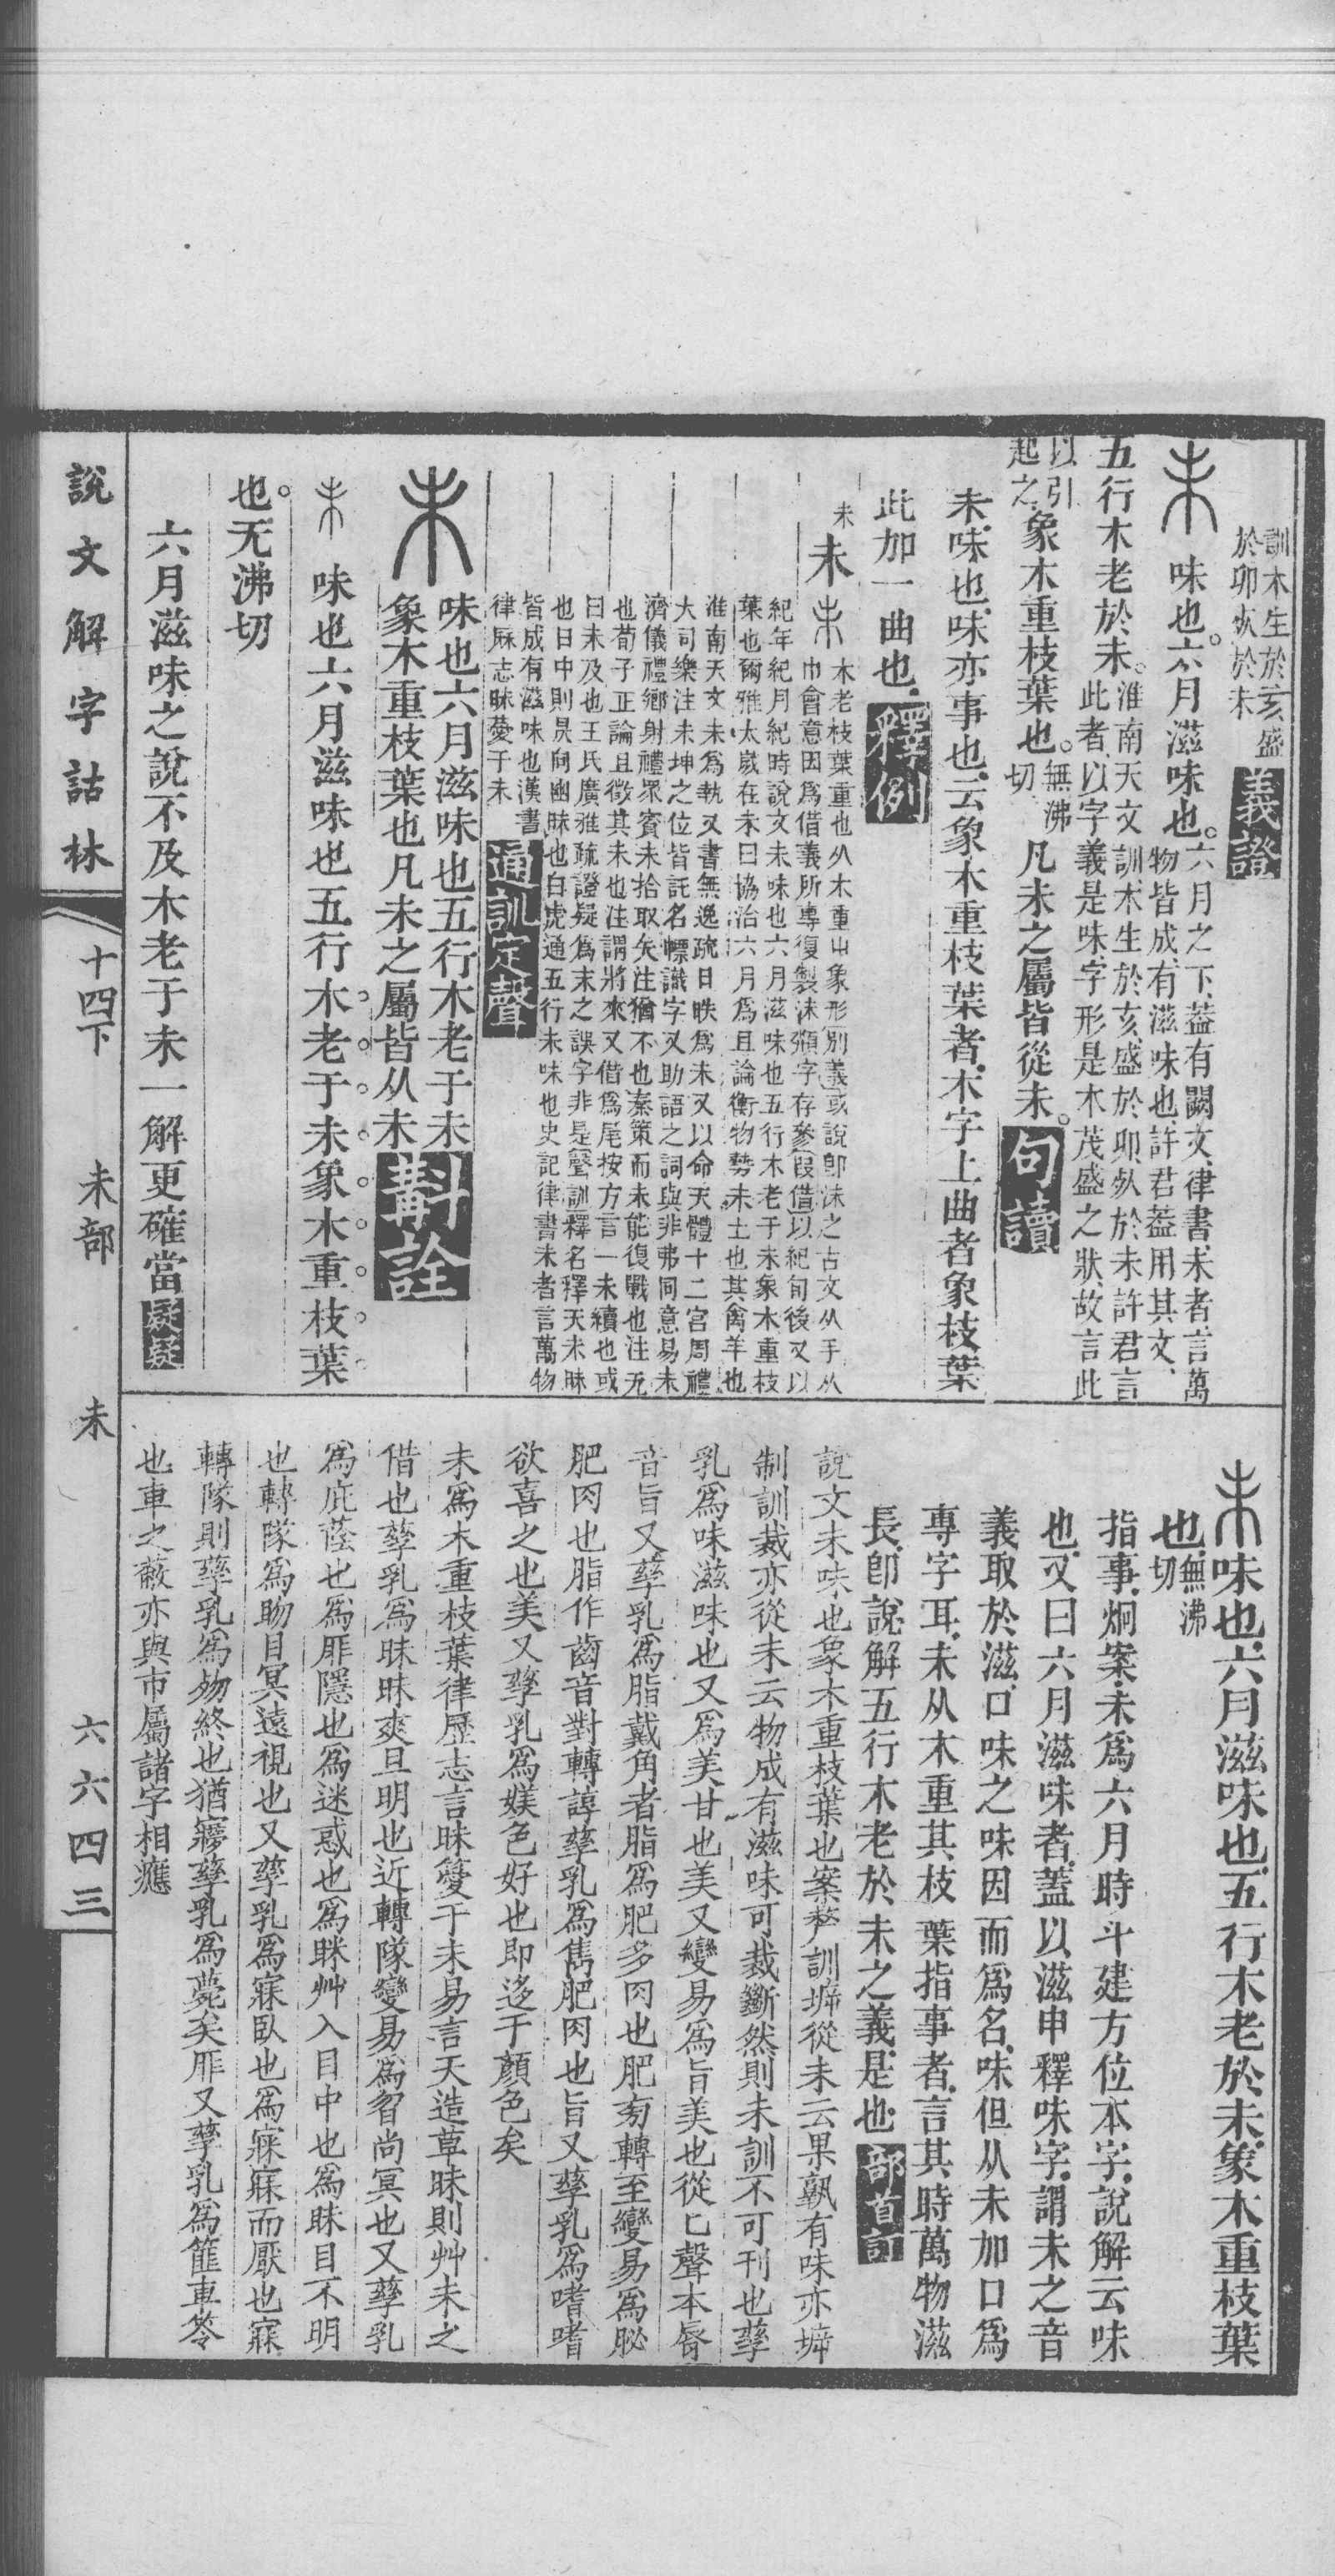 訓木生於亥盛
於卯𣦸於未
義證
味也六月滋味也
六月之下葢有闕文律書未者言萬
物皆成有滋味也許君葢用其文
五行木老於未
淮南天文訓木生於亥盛於卯𣦸於未許君言
此者以字義是味字形是木茂盛之狀故言此
以引
起之
象木重枝葉也
無沸
切
凡未之屬皆從未
句讀
未味也味亦事也云象木重枝葉者木字上曲者象枝葉
此加一曲也
釋例
未
未
木老枝葉重也从木重屮象形別義或說卽沬之古文从手从
巾會意因爲借義所專復製沬頮字存參叚借以紀旬後又以
紀年紀月紀時說文未味也六月滋味也五行木老于未象木重枝
葉也爾雅太嵗在未曰協洽六月爲且論衡物勢未土也其禽羊也
淮南天文未爲執又書無逸疏日昳爲未又以命天體十二宮周禮
大司樂注未坤之位皆託名幖識字又助語之詞與非弗同意易未
濟儀禮鄉射禮眾賓未拾取矢注猶不也秦策而未能復戰也注无
也荀子正論且徵其未也注謂將來又借爲尾按方言一未續也或
曰未及也王氏廣雅疏證疑爲末之誤字非是聲訓釋名釋天未昧
也日中則昃向幽昧也白虎通五行未味也史記律書未者言萬物
皆成有滋味也漢書
律厤志昧薆于未
通訓定聲
味也六月滋味也五行木老于未
象木重枝葉也凡未之屬皆从未
斠詮
味也六月滋味也五行木老于未象木重枝葉
也无沸切
六月滋味之說不及木老于未一解更確當
疑疑
味也六月滋味也五行木老於未象木重枝葉
也
無沸
切
指事炯案未爲六月時斗建方位本字說解云味
也又曰六月滋味者蓋以滋申釋味字謂未之音
義取於滋口味之味因而爲名味但从未加口爲
專字耳未从木重其枝葉指事者言其時萬物滋
長卽說解五行木老於未之義是也
部首訂
說文未味也象木重枝葉也案𠩺訓㙷從未云果孰有味亦㙷
制訓裁亦從未云物成有滋味可裁斷然則未訓不可刊也孳
乳爲味滋味也又爲美甘也美又變易爲旨美也從匕聲本脣
音旨又孳乳爲脂戴角者脂爲肥多肉也肥旁轉至變易爲䏟
肥肉也脂作齒音對轉諄孳乳爲雋肥肉也旨又孳乳爲嗜嗜
欲喜之也美又孳乳爲媄色好也即迻于顏色矣
未爲木重枝葉律歷志言昧薆于未易言天造草昧則艸未之
借也孳乳爲昧昧爽旦明也近轉隊變易爲曶尚冥也又孳乳
爲庇蔭也爲厞隱也爲迷惑也爲眯艸入目中也爲眛目不明
也轉隊爲眑目冥遠視也又孳乳爲寐臥也爲寱寐而厭也寐
轉隊則孳乳爲歾終也猶寢孳乳爲薨矣厞又孳乳爲篚車笭
也車之蔽亦與巿屬諸字相應
說文解字詁林
十四下
未部
未
六六四三